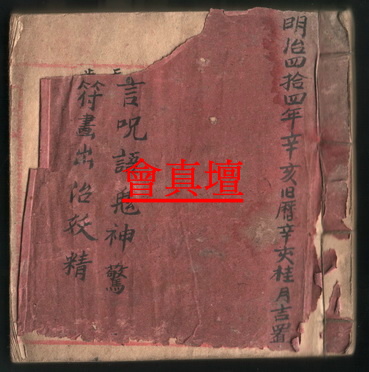 明治四拾四年辛亥旧曆辛亥桂月吉置
言咒語鬼神驚
符畫出治妖精
會真壇